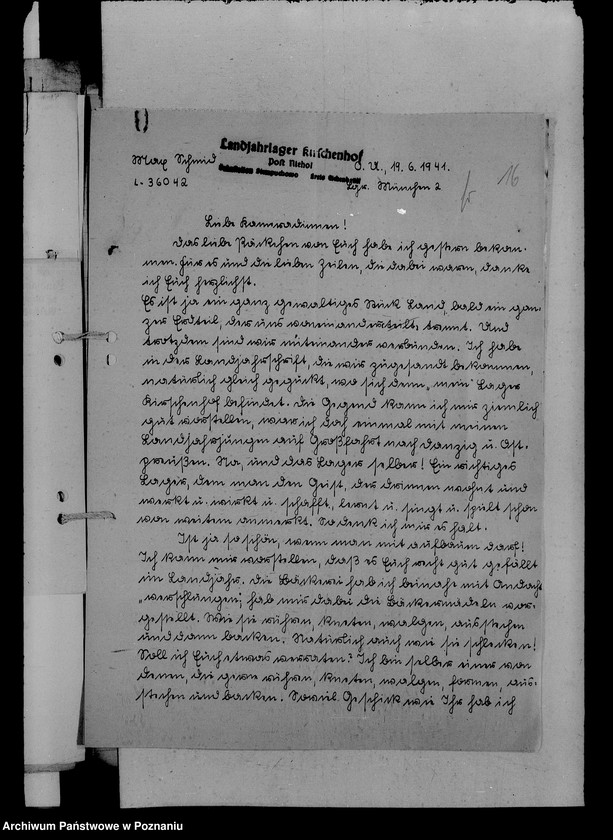 Landjahrlager Kirschenhof
Post Riehol
Max Schmid O.U., 19.6.1941.
L-36042 Lgn. München 2
16
Liebe Kameradinnen!
Das liebe Päckchen von Euch habe ich gestern bekom-
men. Für es und die lieben Zeilen, die dabei waren, danke
ich Euch herzlichst.
Es ist ja ein ganz gewaltiges Stück Land, bald ein gan-
zer Erdteil, der uns voneinanderteilt, trennt. Und
trotzdem sind wir miteinander verbunden. Ich habe
in der Landjahrschrift, die wir zugesandt bekommen,
natürlich gleich geguckt, wo sich denn „mein" Lager
Kirschenhof befindet. Die Gegend kann ich mir ziemlich
gut vorstellen, war ich doch einmal mit meinen
Landjahrjungen auf Großfahrt nach Danzig u. Ost-
preußen. Na, und das Lager selber! Ein richtiges
Lager, dem man den Geist, der drinnen wohnt und
werkt u. wirkt u. schafft, lernt u. singt u. spielt schon
von weitem anmerkt. So denk ich mir es halt.
Ist ja so schön, wenn man mit aufbauen darf!
Ich kann mir vorstellen, daß es Euch recht gut gefällt
im Landjahr. Die Bäckerei hab ich beinahe mit Andacht
„verschlungen", hab mir dabei die Bäckermädeln vor-
gestellt. Wie sie rühren, kneten, walgen, ausstechen
und dann backen. Natürlich auch wie sie schlecken!
Soll ich Euch etwas verraten? Ich bin selber einer von
denen, die gern rühren, kneten, walgen, formen, aus-
stechen und backen. Soviel Geschick wie Ihr hab ich
Archiwum Państwowe w Poznaniu